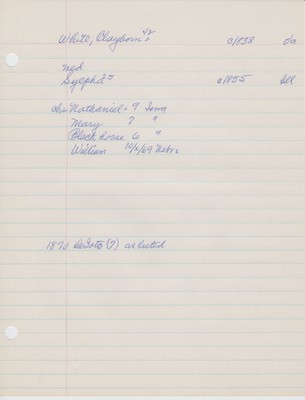 White, Clayborn 42 c/838 Va
md
Sylpha 25 c/855 Ill
chi: Nathaniel - 9 Iowa
Mary 7 "
Black horse 6 "
William 10/4/69 Nebr
1870 DeSoto (?) as listed